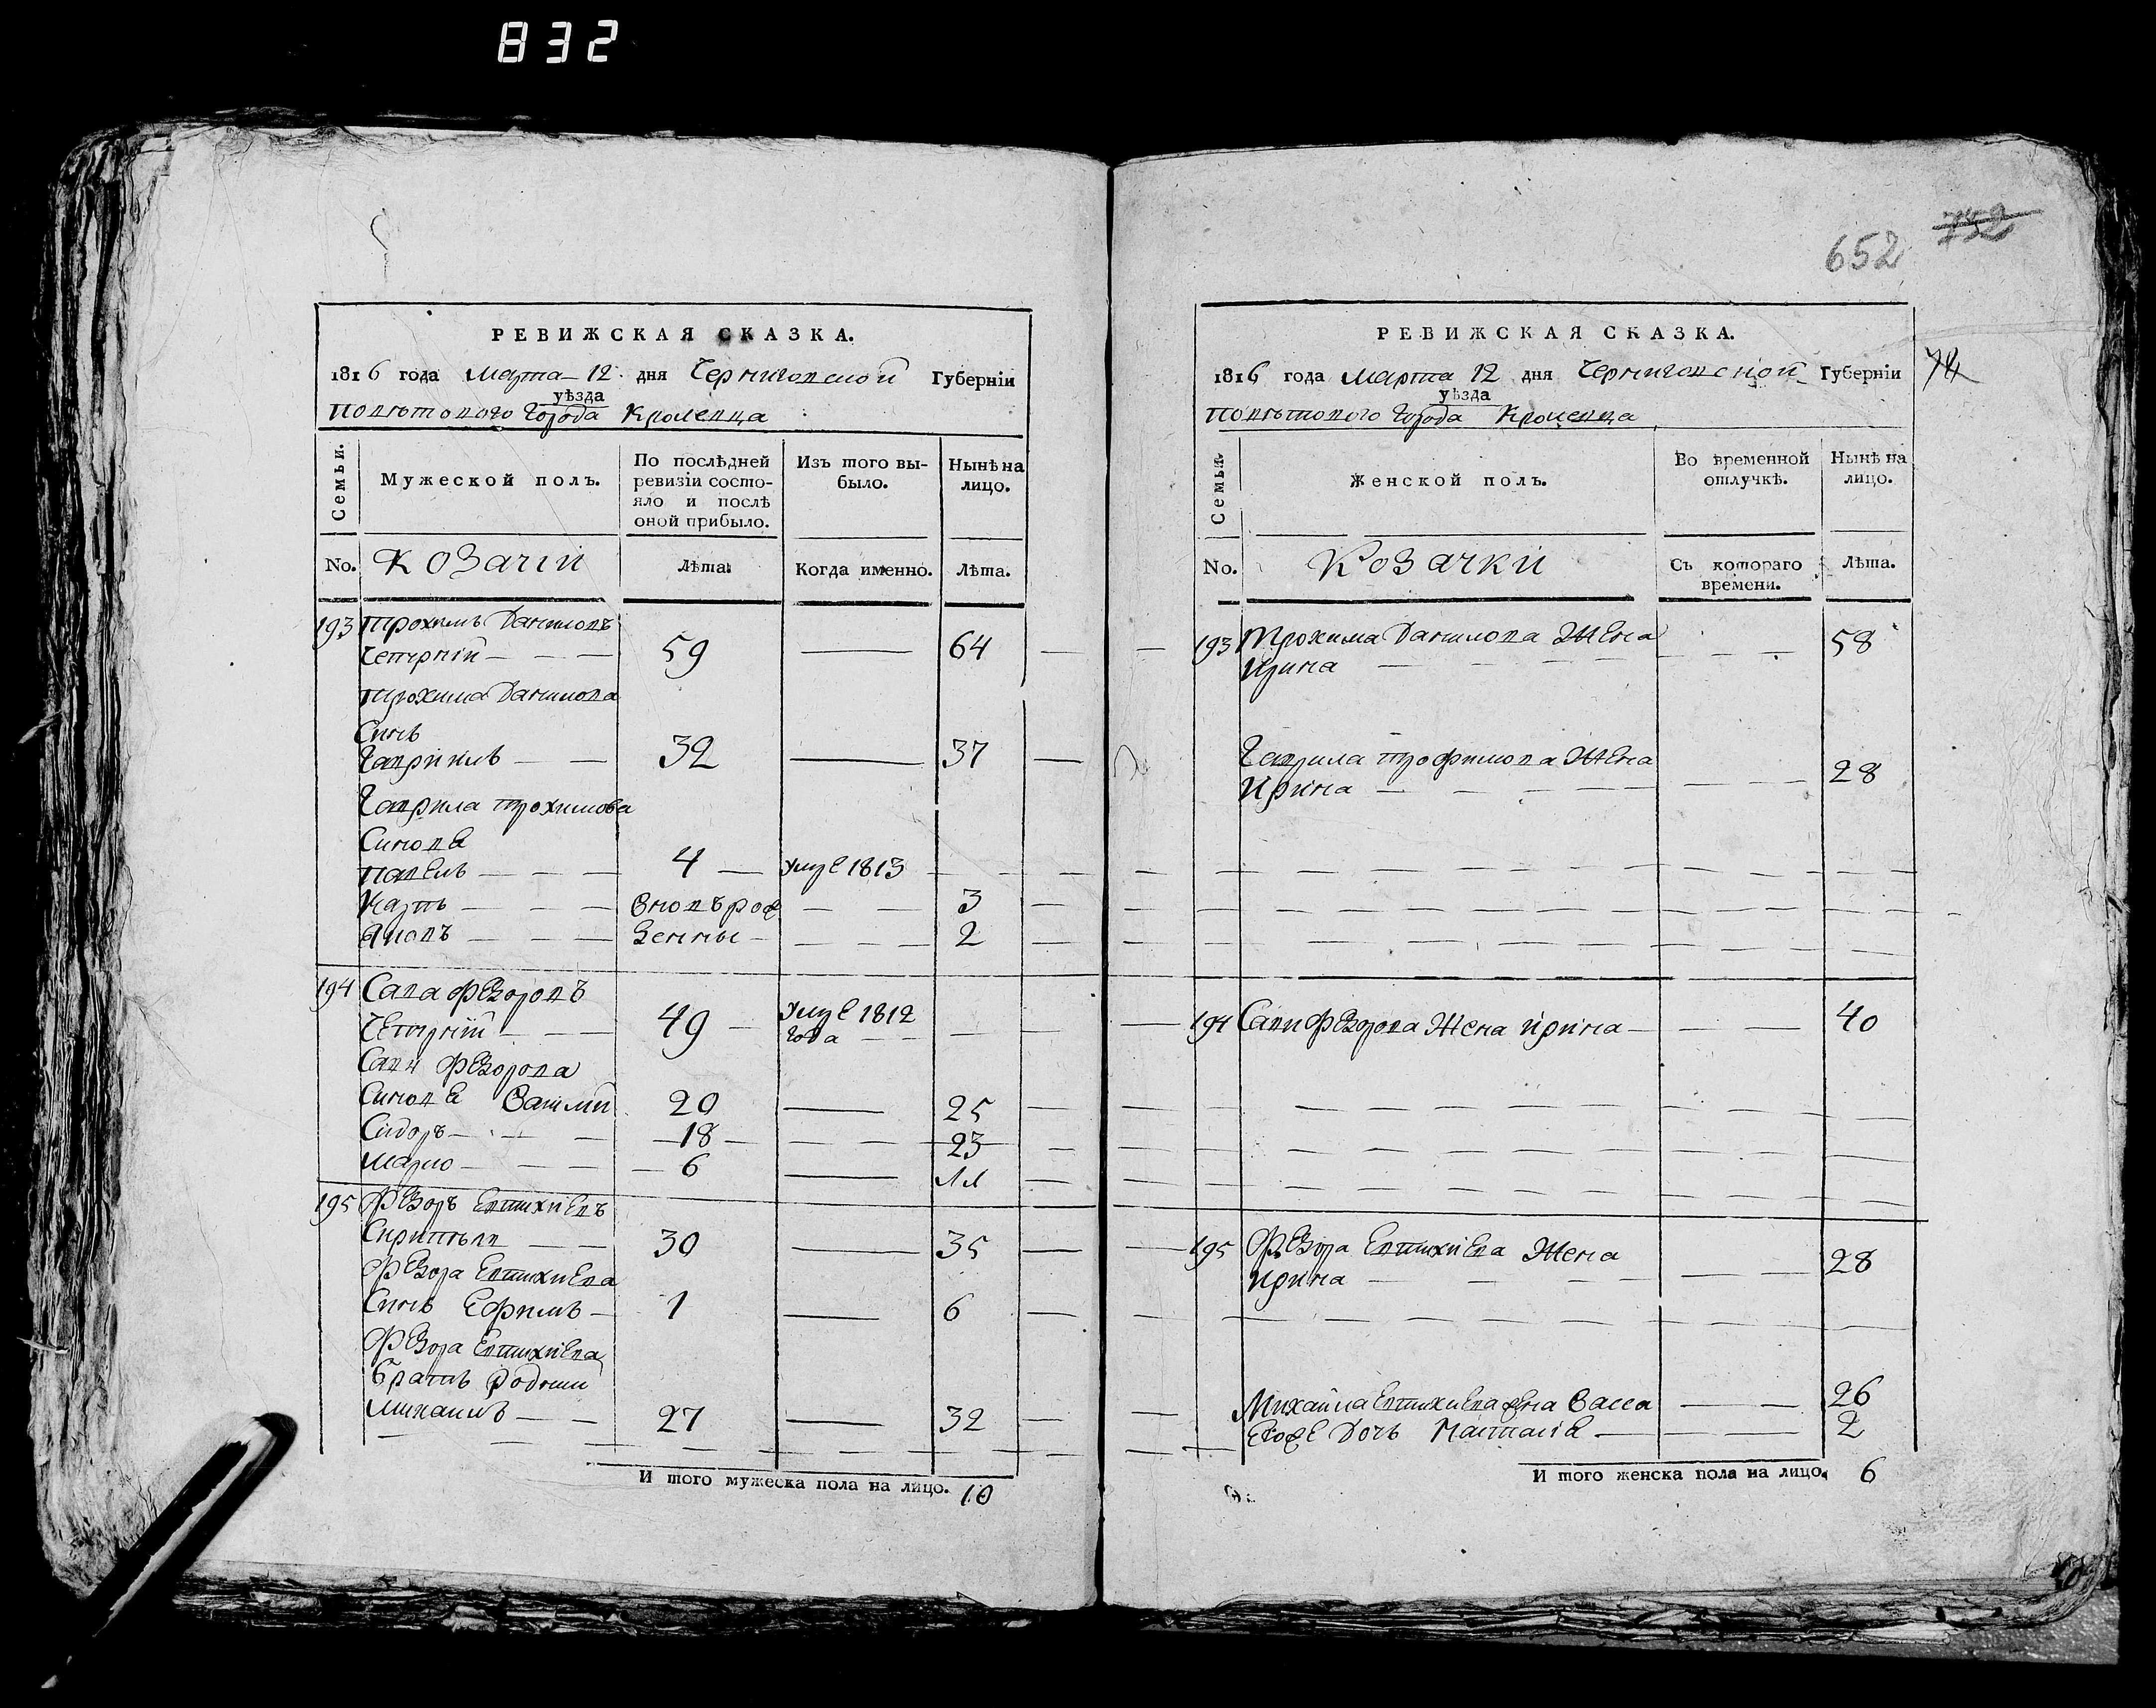 832
РЕВИЖСКАЯ СКАЗКА.
1816 года Марта 12 дня Черниговской Губерніи
уѣзда
Поветового Города Кролевца
Семьи.
Мужеской полъ.
По послѣдней ревизіи состо-
яло и послѣ
оной прибыло.
Изъ того вы-
было.
Нынѣ на
лицо.
No. Козачіи
Лѣта.
Когда именно.
Лѣта.
193 Трохимъ Даниловъ
59 64
Трохима Данилова
Синъ
Гавриилъ 32 37
Гаврила Трохимова
Синовя
Павелъ 4 умре 1813
Карпъ вновърож 3
Яковъ денны 2
194 Сава Федоровъ
49 умре 1812
года
Сави Федорова
Синовя Василий 20 25
Сидоръ 18 23
Марко 6 11
195 Федоръ Евтихиевъ
30 35
Федора Евтихиева
Синъ Ефимъ 1 6
Федора Евтихиева
Братъ родний
Михаилъ 27 32
И того мужеска пола на лицо. 10
652 752
РЕВИЖСКАЯ СКАЗКА.
1816 года Марта 12 дня Черниговской Губерніи
уѣзда
Поветового Города Кролевца
Семьи.
Женской полъ.
Во временной
отлучкѣ.
Нынѣ на
лицо.
No. Козачки
Съ котораго
времени.
Лѣта.
193 Трохима Данилова Жена
Ирина 58
Гаврила Трофимова Жена
Ирина 28
194 Сави Федорова Жена Ирина 40
195 Федора Евтихиева Жена
Ирина 28
Михаила Евтихиева жена Васса 26
Егоже Дочь Наталія 2
И того женска пола на лицо. 6